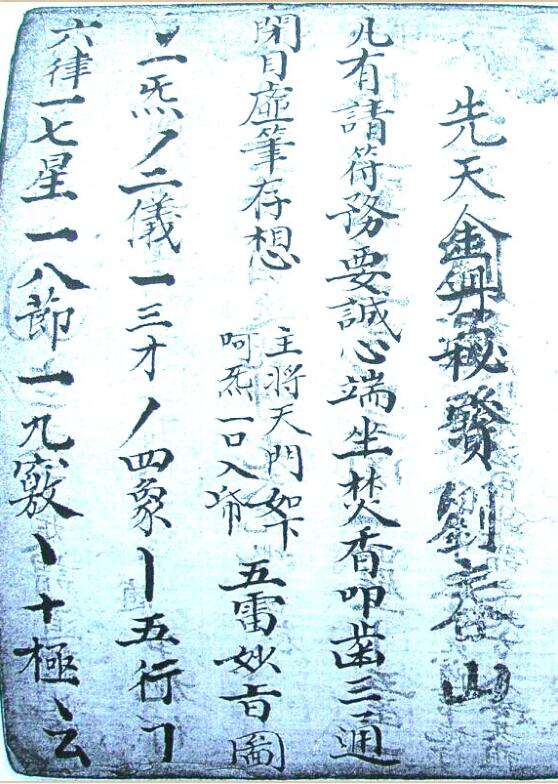 先天金丹秘寶劉玄谷山
凡有請符務要誠心端坐焚香叩齒三通
閉目虛筆存想
主將天門如下
呵炁一口入筆
五雷妙旨圖
丶一炁丿二儀一三才丿四象丨五行㇆
六律一七星一八節一九竅丶十極丶玄